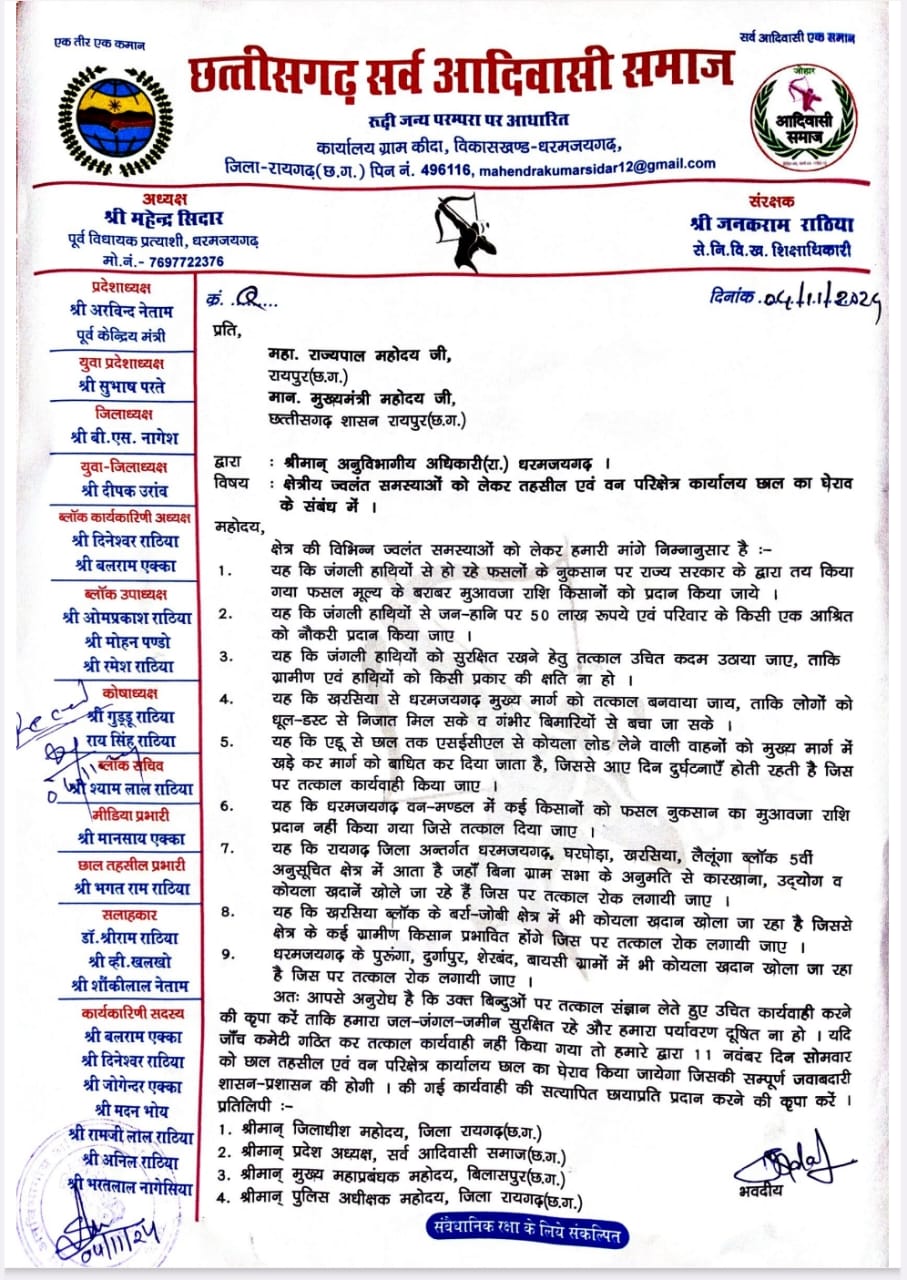 एक तीर एक कमान
सर्व आदिवासी एक समान
छत्तीसगढ़ सर्व आदिवासी समाज
रूढी जन्य परम्परा पर आधारित
कार्यालय ग्राम कीदा, विकासखण्ड-धरमजयगढ़,
जिला-रायगढ़(छ.ग.) पिन नं. 496116, mahendrakumarsidar12@gmail.com
जोहार
आदिवासी
समाज
अध्यक्ष
श्री महेन्द्र सिदार
पूर्व विधायक प्रत्याशी, धरमजयगढ़
मो.नं.- 7697722376
संरक्षक
श्री जनकराम राठिया
से.नि.वि.ख. शिक्षाधिकारी
प्रदेशाध्यक्ष
श्री अरविन्द नेताम
पूर्व केन्द्रिय मंत्री
युवा प्रदेशाध्यक्ष
श्री सुभाष परते
जिलाध्यक्ष
श्री बी.एस. नागेश
युवा-जिलाध्यक्ष
श्री दीपक उरांव
ब्लॉक कार्यकारिणी अध्यक्ष
श्री दिनेश्वर राठिया
श्री बलराम एक्का
ब्लॉक उपाध्यक्ष
श्री ओमप्रकाश राठिया
श्री मोहन पण्डो
श्री रमेश राठिया
कोषाध्यक्ष
श्री गुड्डू राठिया
राय सिंह राठिया
ब्लॉक सचिव
श्री श्याम लाल राठिया
मीडिया प्रभारी
श्री मानसाय एक्का
छाल तहसील प्रभारी
श्री भगत राम राठिया
सलाहकार
डॉ.श्रीराम राठिया
श्री व्ही.खलखो
श्री शौंकीलाल नेताम
कार्यकारिणी सदस्य
श्री बलराम एक्का
श्री दिनेश्वर राठिया
श्री जोगेन्दर एक्का
श्री मदन भोय
श्री रामजी लाल राठिया
श्री अनिल राठिया
श्री भरतलाल नागेसिया
04/11/24
क्रं.
दिनांक.04/11/2024
प्रति,
महा. राज्यपाल महोदय जी,
रायपुर(छ.ग.)
मान. मुख्यमंत्री महोदय जी,
छत्तीसगढ़ शासन रायपुर(छ.ग.)
द्वारा : श्रीमान् अनुविभागीय अधिकारी(रा.) धरमजयगढ़ ।
विषय : क्षेत्रीय ज्वलंत समस्याओं को लेकर तहसील एवं वन परिक्षेत्र कार्यालय छाल का घेराव
के संबंध में ।
महोदय,
क्षेत्र की विभिन्न ज्वलंत समस्याओं को लेकर हमारी मांगे निम्नानुसार है :-
1. यह कि जंगली हाथियों से हो रहे फसलों के नुकसान पर राज्य सरकार के द्वारा तय किया
गया फसल मूल्य के बराबर मुआवजा राशि किसानों को प्रदान किया जाये ।
2. यह कि जंगली हाथियों से जन-हानि पर 50 लाख रूपये एवं परिवार के किसी एक आश्रित
को नौकरी प्रदान किया जाए ।
3. यह कि जंगली हाथियों को सुरक्षित रखने हेतु तत्काल उचित कदम उठाया जाए, ताकि
ग्रामीण एवं हाथियों को किसी प्रकार की क्षति ना हो ।
4. यह कि खरसिया से धरमजयगढ़ मुख्य मार्ग को तत्काल बनवाया जाय, ताकि लोगों को
धूल-डस्ट से निजात मिल सके व गंभीर बिमारियों से बचा जा सके ।
5. यह कि एडू से छाल तक एसईसीएल से कोयला लोड लेने वाली वाहनों को मुख्य मार्ग में
खड़े कर मार्ग को बाधित कर दिया जाता है, जिससे आए दिन दुर्घटनाएँ होती रहती है जिस
पर तत्काल कार्यवाही किया जाए ।
6. यह कि धरमजयगढ़ वन-मण्डल में कई किसानों को फसल नुकसान का मुआवजा राशि
प्रदान नहीं किया गया जिसे तत्काल दिया जाए ।
7. यह कि रायगढ़ जिला अन्तर्गत धरमजयगढ़, घरघोड़ा, खरसिया, लैलूंगा ब्लॉक 5वीं
अनुसूचित क्षेत्र में आता है जहाँ बिना ग्राम सभा के अनुमति से कारखाना, उद्योग व
कोयला खदानें खोले जा रहे हैं जिस पर तत्काल रोक लगायी जाए ।
8. यह कि खरसिया ब्लॉक के बर्रा-जोबी क्षेत्र में भी कोयला खदान खोला जा रहा है जिससे
क्षेत्र के कई ग्रामीण किसान प्रभावित होंगे जिस पर तत्काल रोक लगायी जाए ।
9. धरमजयगढ़ के पुरूंगा, दुर्गापुर, शेरबंद, बायसी ग्रामों में भी कोयला खदान खोला जा रहा
है जिस पर तत्काल रोक लगायी जाए ।
अतः आपसे अनुरोध है कि उक्त बिन्दुओं पर तत्काल संज्ञान लेते हुए उचित कार्यवाही करने
की कृपा करें ताकि हमारा जल-जंगल-जमीन सुरक्षित रहे और हमारा पर्यावरण दूषित ना हो । यदि
जाँच कमेटी गठित कर तत्काल कार्यवाही नहीं किया गया तो हमारे द्वारा 11 नवंबर दिन सोमवार
को छाल तहसील एवं वन परिक्षेत्र कार्यालय छाल का घेराव किया जायेगा जिसकी सम्पूर्ण जवाबदारी
शासन-प्रशासन की होगी । की गई कार्यवाही की सत्यापित छायाप्रति प्रदान करने की कृपा करें ।
प्रतिलिपी :-
1. श्रीमान् जिलाधीश महोदय, जिला रायगढ़(छ.ग.)
2. श्रीमान् प्रदेश अध्यक्ष, सर्व आदिवासी समाज(छ.ग.)
3. श्रीमान् मुख्य महाप्रबंधक महोदय, बिलासपुर(छ.ग.)
4. श्रीमान् पुलिस अधीक्षक महोदय, जिला रायगढ़(छ.ग.)
भवदीय
संवैधानिक रक्षा के लिये संकल्पित